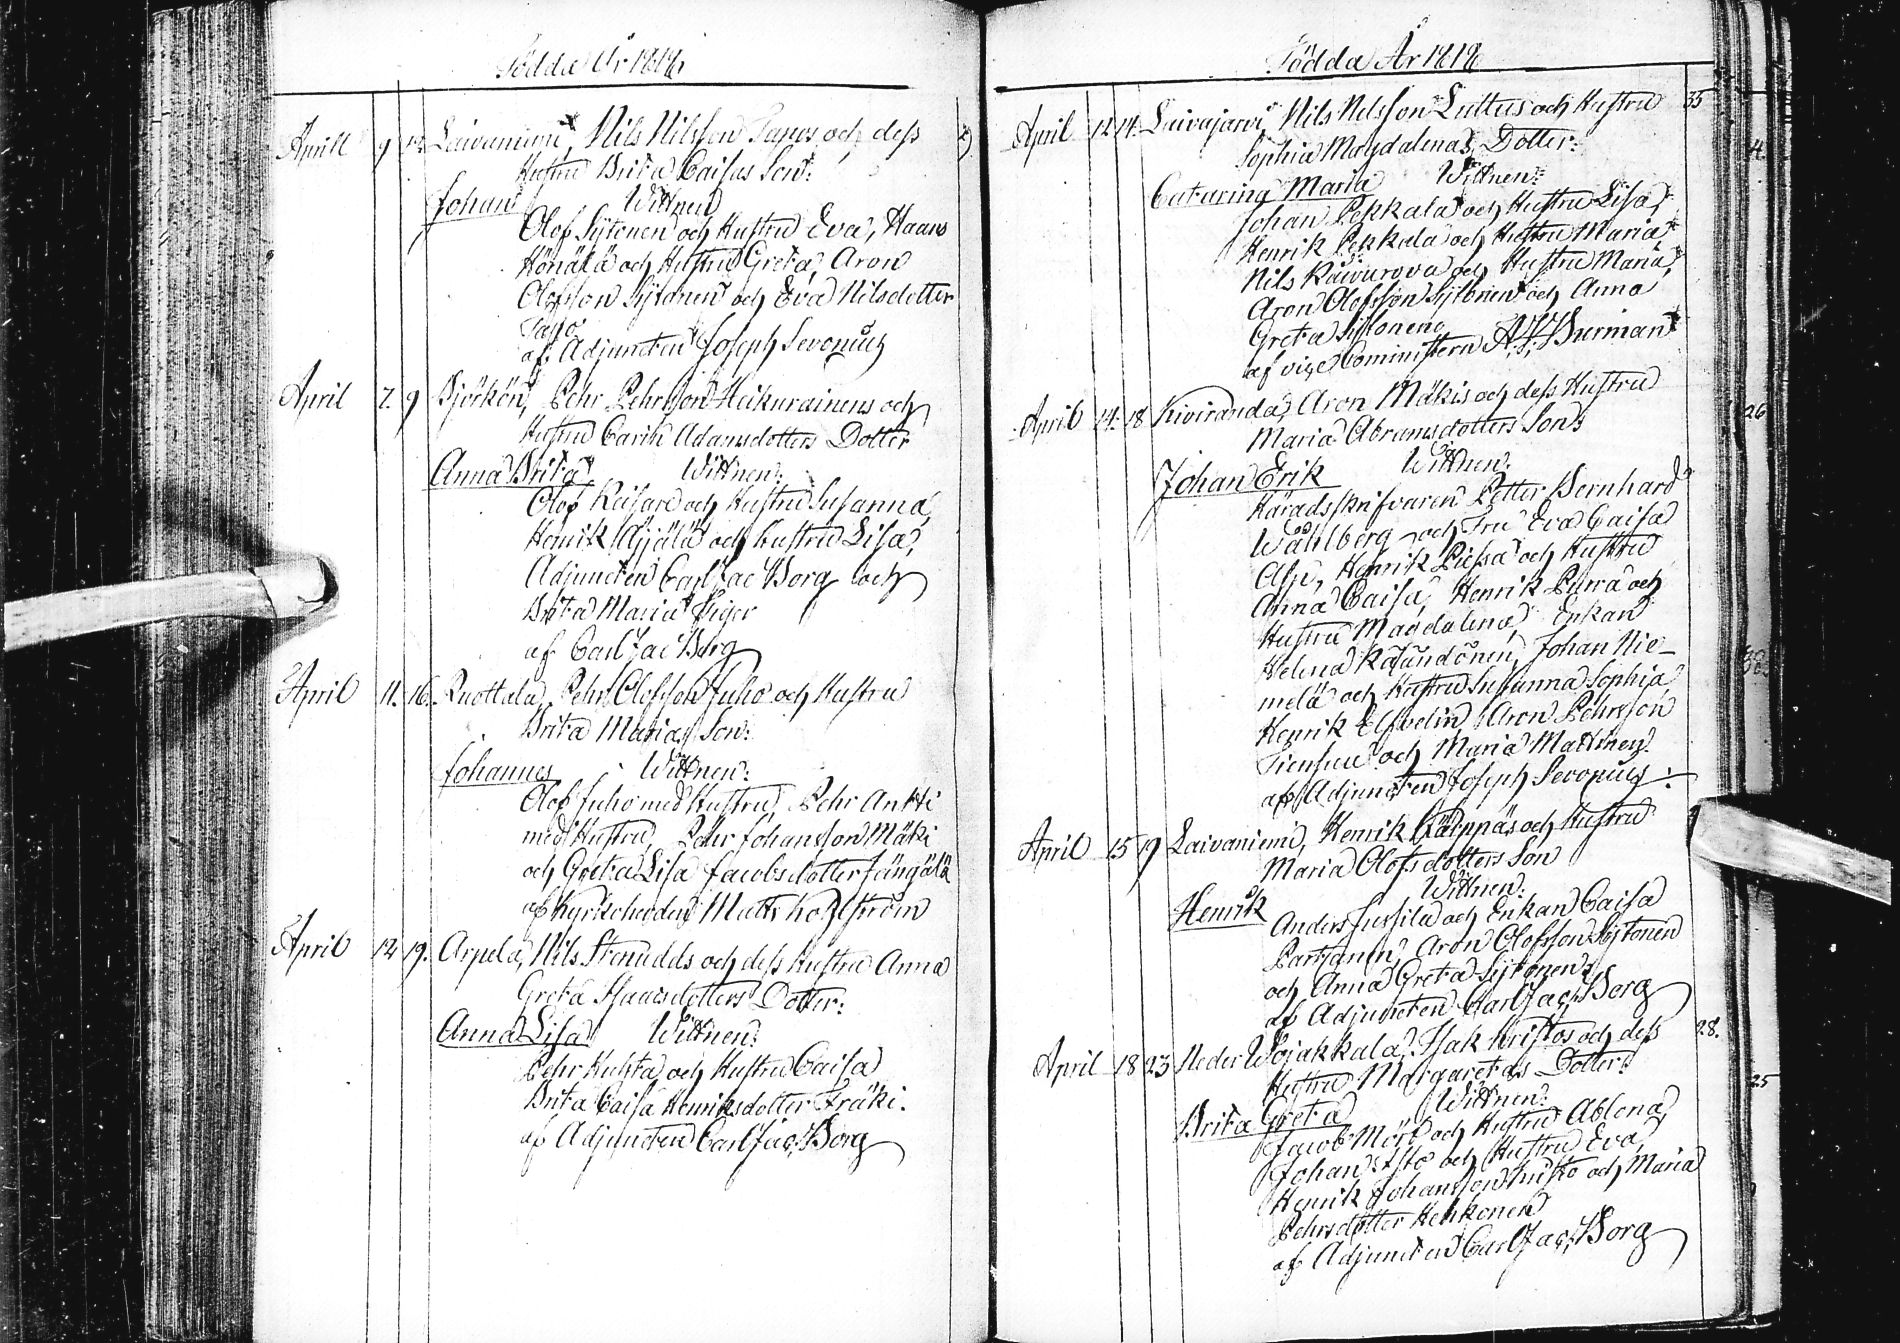 Födda År 1818
Aprill 9 12. Laivaniemi, Nils Nilsson Papos och dess
Hustru Brita Caisas Son:
Johan Wittnen
Olof Sÿtonen och Hustru Eva, Haans
Hönälä och Hustru Greta, Aron
Olofsson Sÿtonen och Eva Nilsdotter
af Adjuncten JosephŠevonius
April 7. 9 Björkön, Pehr Pehrsson Heikurainens och
Hustru Carin Adamsdotters Dotter
Anna Brita Wittnen:
Olof Keisare och Hustru Susanna,
Henrik Äijälä och hustru Lisa,
Adjuncten Carl Jac Borg och
Brita Maria Piger
af Carl Jac Borg
April 11. 16. Ruottala, Pehr Olofsson Juho och Hustru
Brita Marias Son:
Johannes Wittnen:
Olof Juho med Hustru, Pehr Antti
med Hustru, Pehr Johansson Mäki
och Greta Lisa Jacobsdotter
af Kyrkoherden Matts Kohlström
April 12 19. Arpela, Nils Stenudds och dess Hustru Anna
Greta Isaacsdotters Dotter:
Anna Lisa Wittnen:
Pehr Kuhta och Hustru Caisa
Brita Caisa Henriksdotter Fräki.
af Adjuncten Carl Jac. Borg
Födda År 1818
April 12 14. Laivajärvi Nils Nilsson Luttus och Hustru 35
Sophia Magdalenas Dotter:
Catarina Maria Wittnen:
Johan Pekkala och Hustru Lisa,
Henrik Pekkala och Hustru Maria
Nils Kaivurova och Hustru Maria,
Aron Olofsson Sÿtonen och Anna
Greta Sÿtonen
af vice Comministern Burman
April 14. 18 Kiviranda, Aron Mäkis och dess Hustru
Maria Abramsdotters Son:
Johan Erik Wittnen:
Häradsskrifvaren Petter Bernhard
Wahlberg och Fru Eva Caisa
Alp, Henrik Piessa och Hustru
Anna Caisa, Henrik Purra och
Hustru Magdalena, Enkan
Helena, Johan Nie-
melä och Hustru Susanna Sophia,
Henrik Elfvelin, Aron Pehrsson
och Maria Mattinen
af Adjuncten Joseph Sevonius:
April 15 19 Laivaniemi, Henrik Kälppäs och Hustru
Maria Olofsdotters Son
Wittnen:
Henrik Anders Jussila och Enkan Caisa
Partanen, Aron Olofsson Sÿtonen
och Anna Greta Sÿtonen
af Adjuncten Carl Jac. Borg
28.
April 18 23 Neder Wojakkala, Isak Kristos och dess
Hustru Margaretas Dotter:
Brita Greta Wittnen:
Jacob Mört och Hustru Ablona,
Johan och Hustru Eva,
Henrik Johansson Kristo och Maria
Pehrsdotter Kehkonen
af Adjuncten Carl Jac. Borg